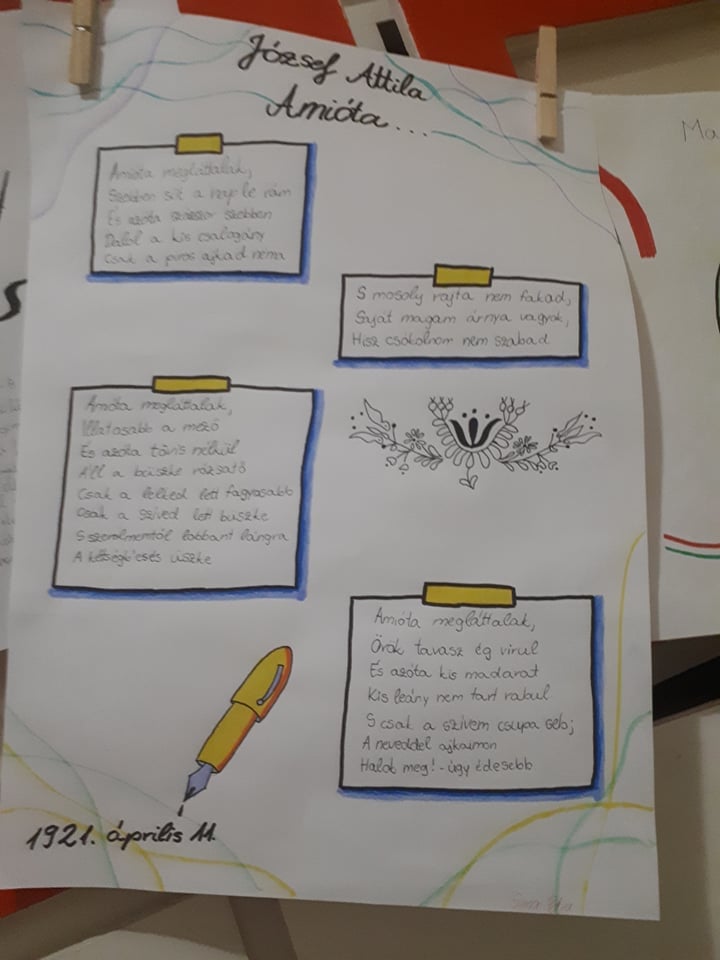 József Attila
Amióta...
Amióta megláttalak,
Szebben süt a nap le rám
És azóta százszor szebben
Dalol a kis csalogány
Csak a piros ajkad néma
S mosoly rajta nem fakad,
Saját magam árnya vagyok,
Hisz csókolnom nem szabad
Amióta megláttalak,
Illatosabb a mező
És azóta tövis nélkül
Áll a büszke rózsatő
Csak a lelked lett fagyosabb
Csak a szíved lett büszke
S szerelmemtől lobbant lángra
A kétségb'esés üszke
Amióta megláttalak,
Örök tavasz ég virul
És azóta kis madarat
Kis leány nem tart rabul
S csak a szívem csupa seb;
A neveddel ajkaimon
Halok meg! - úgy édesebb
1921. április 11.
Ma